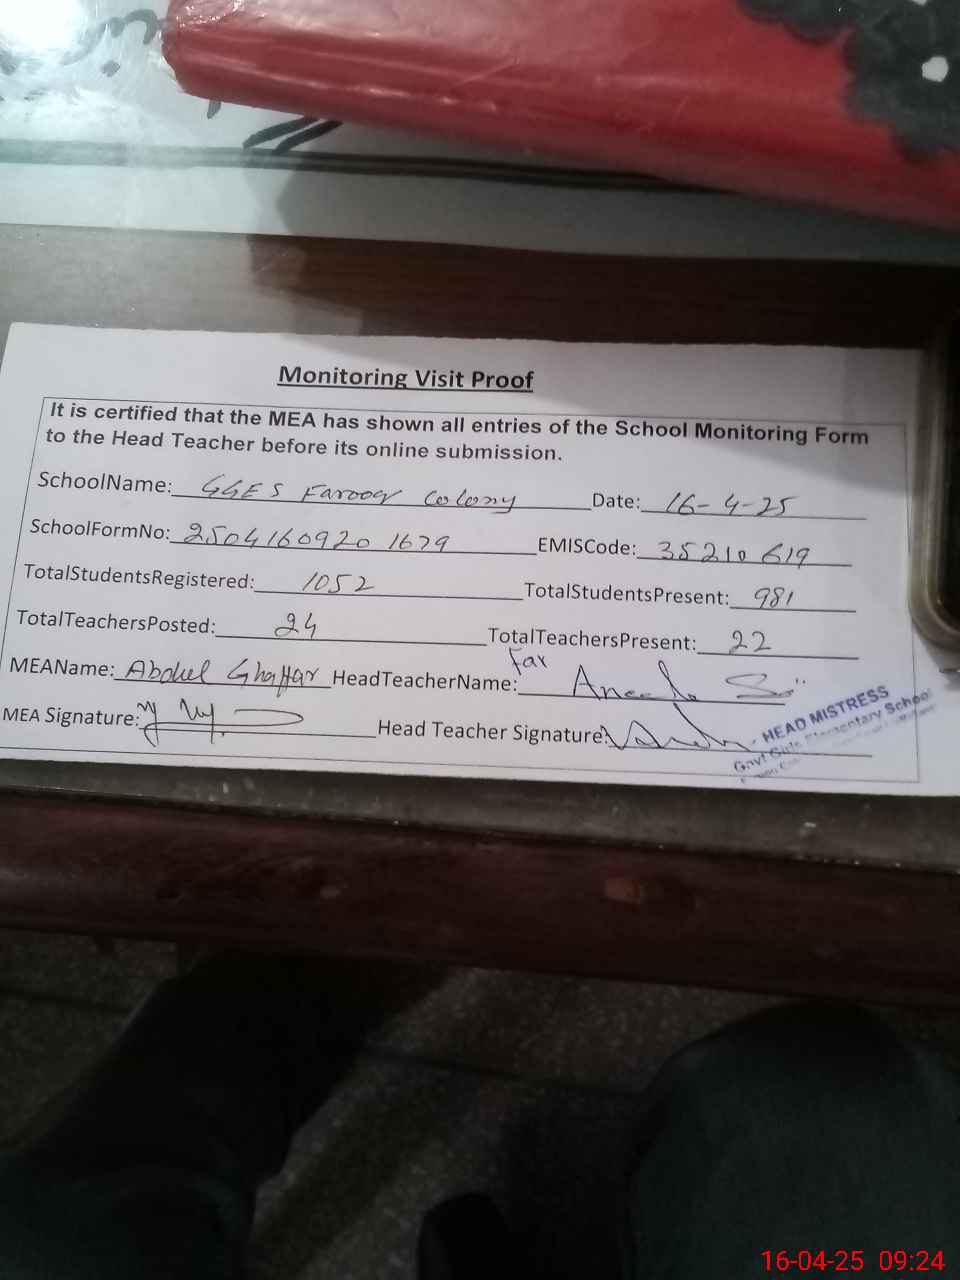 Monitoring Visit Proof
It is certified that the MEA has shown all entries of the School Monitoring Form
to the Head Teacher before its online submission.
SchoolName: GGES Farooq Colony Date: 16-4-25
SchoolFormNo: 25041609201679 EMISCode: 35210619
TotalStudentsRegistered: 1052 TotalStudentsPresent: 981
TotalTeachersPosted: 24 TotalTeachersPresent: 22
For
MEAName: Abdul Ghaffar HeadTeacherName:
MEA Signature: Head Teacher Signature:
HEAD MISTRESS
Govt Girls Elementary School
16-04-25 09:24